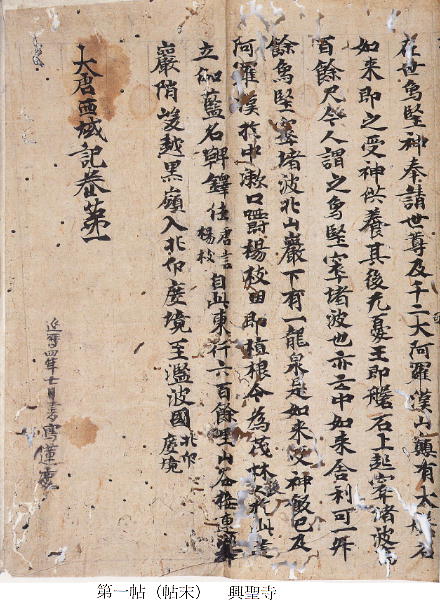 在世象堅神奉請世尊及千二大阿羅漢山巔有大磐石
如來即之受神供養其後无憂王即磐石上起窣堵波高
百餘尺今人謂之象堅窣堵波也亦云中如來舍利可一升
餘象堅窣堵波北山巖下有一龍泉是如來受神飯已及
阿羅漢於中漱口嚼楊枝因即植根今為茂林後人於此
立伽藍名鞞鐸佉唐言楊枝自此東行六百餘里山谷接連峯
巖峭峻越黑嶺入北印度境至濫波國北印度境
大唐西域記卷第一
延曆四年七月
第一帖（帖末）　興聖寺